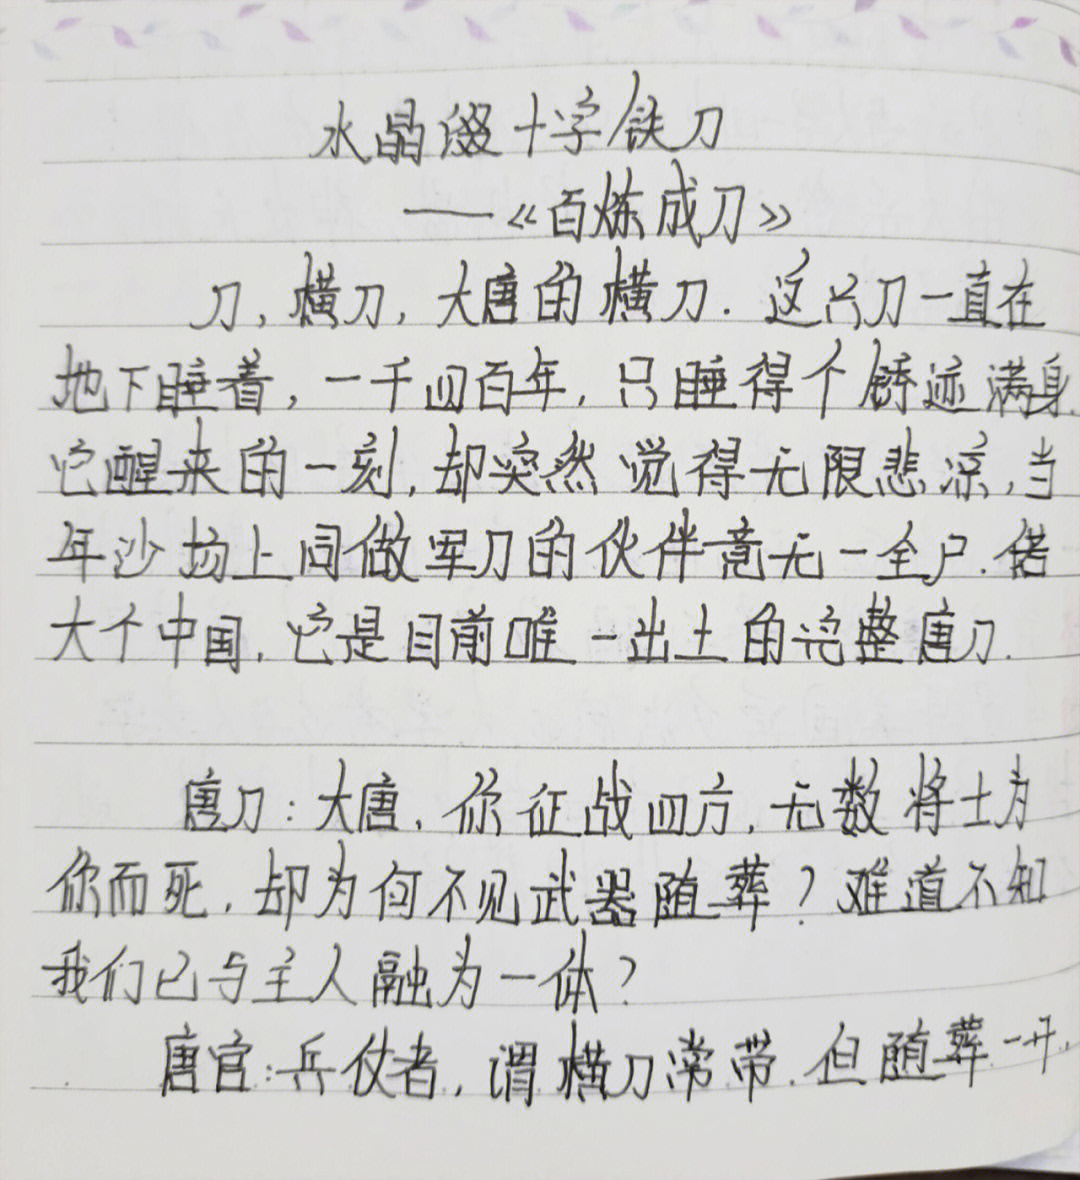 水晶缀十字铁刀
——《百炼成刀》
刀，横刀，大唐的横刀．这片刀一直在
地下睡着，一千四百年，只睡得个锈迹满身．
它醒来的一刻，却突然觉得无限悲凉，当
年沙场上同做军刀的伙伴竟无一全尸．偌
大个中国，它是目前唯一出土的完整唐刀．
唐刀：大唐，你征战四方，无数将士为
你而死，却为何不见武器随葬？难道不知
我们已与主人融为一体？
唐官：兵仗者，谓横刀常带．但随葬一开，